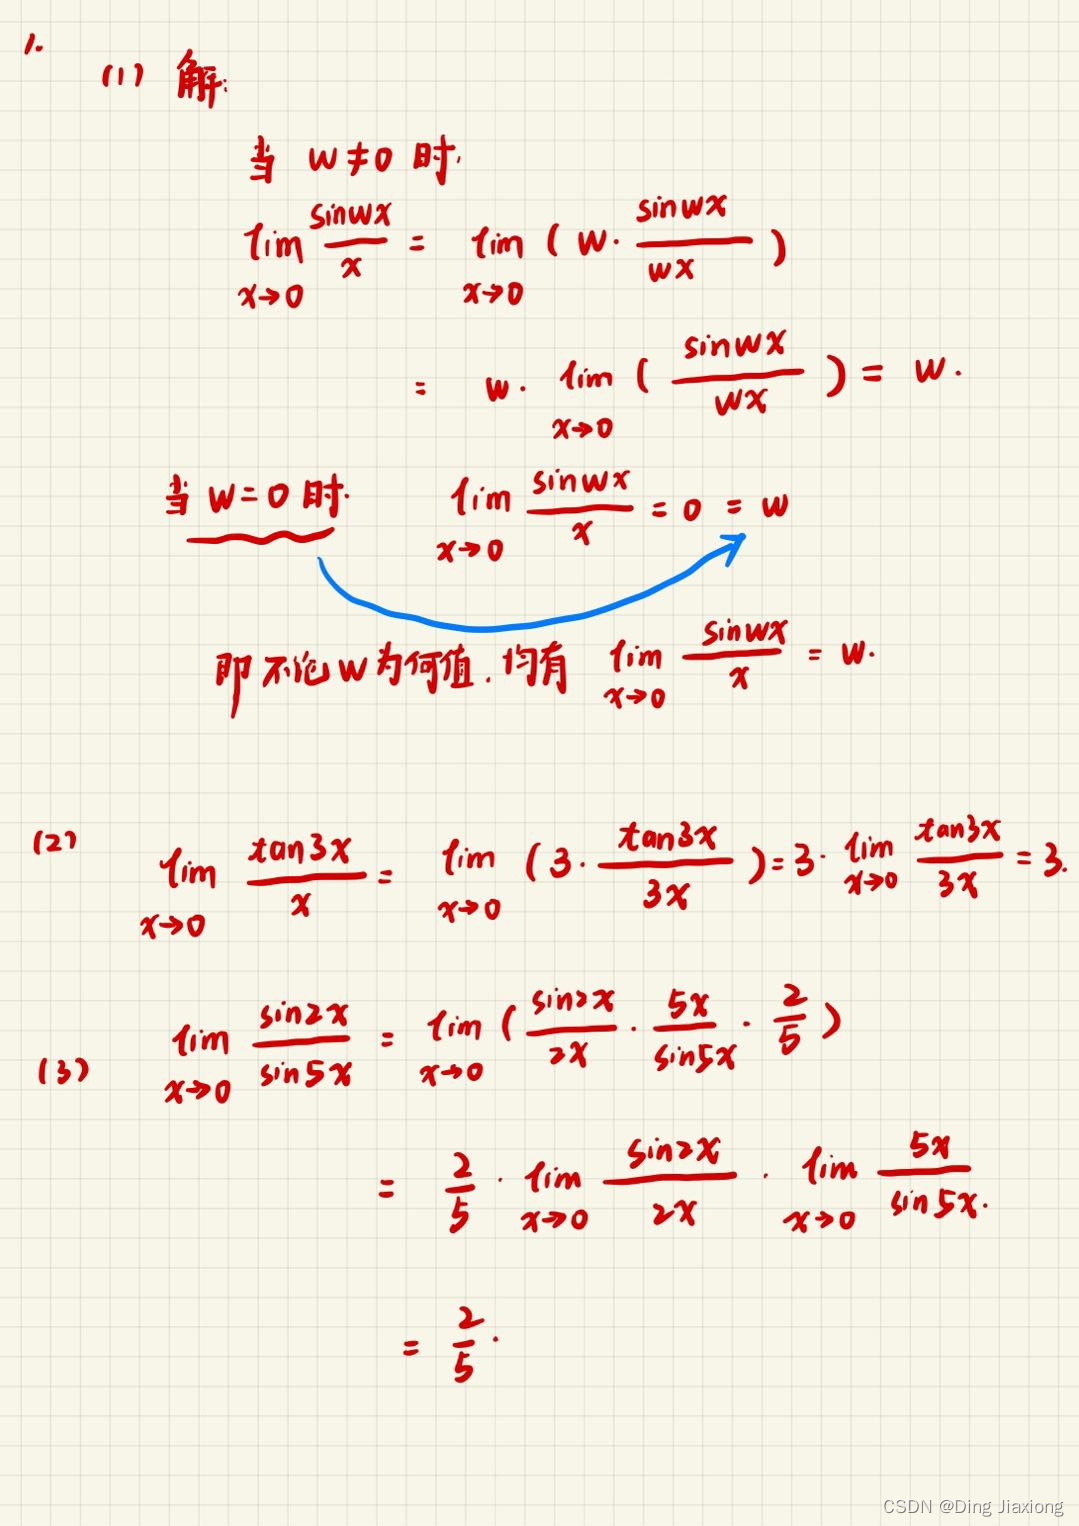 1.
(1) 解:
当 w≠0 时,
lim_{x→0} sinwx/x = lim_{x→0} (w·sinwx/wx)
= w·lim_{x→0} (sinwx/wx) = w.
当 w=0 时. lim_{x→0} sinwx/x = 0 = w
即不论w为何值,均有 lim_{x→0} sinwx/x = w.
(2) lim_{x→0} tan3x/x = lim_{x→0} (3·tan3x/3x) = 3·lim_{x→0} tan3x/3x = 3.
(3) lim_{x→0} sin2x/sin5x = lim_{x→0} (sin2x/2x · 5x/sin5x · 2/5)
= 2/5 · lim_{x→0} sin2x/2x · lim_{x→0} 5x/sin5x.
= 2/5.
CSDN @Ding Jiaxiong